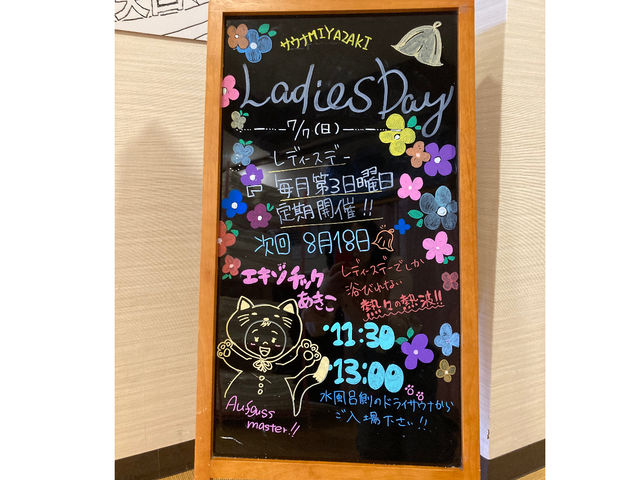 サウナMIYAZAKI
Ladies Day
7/7(日)
レディースデー
毎月第3日曜日
定期開催!!
次回 8月18日
エキゾチック
あきこ
レディースデーでしか
浴びれない
熱々の熱波!!
・11:30
・13:00
水風呂側のドライサウナから
ご入場下さい!!
Aufguss
master!!